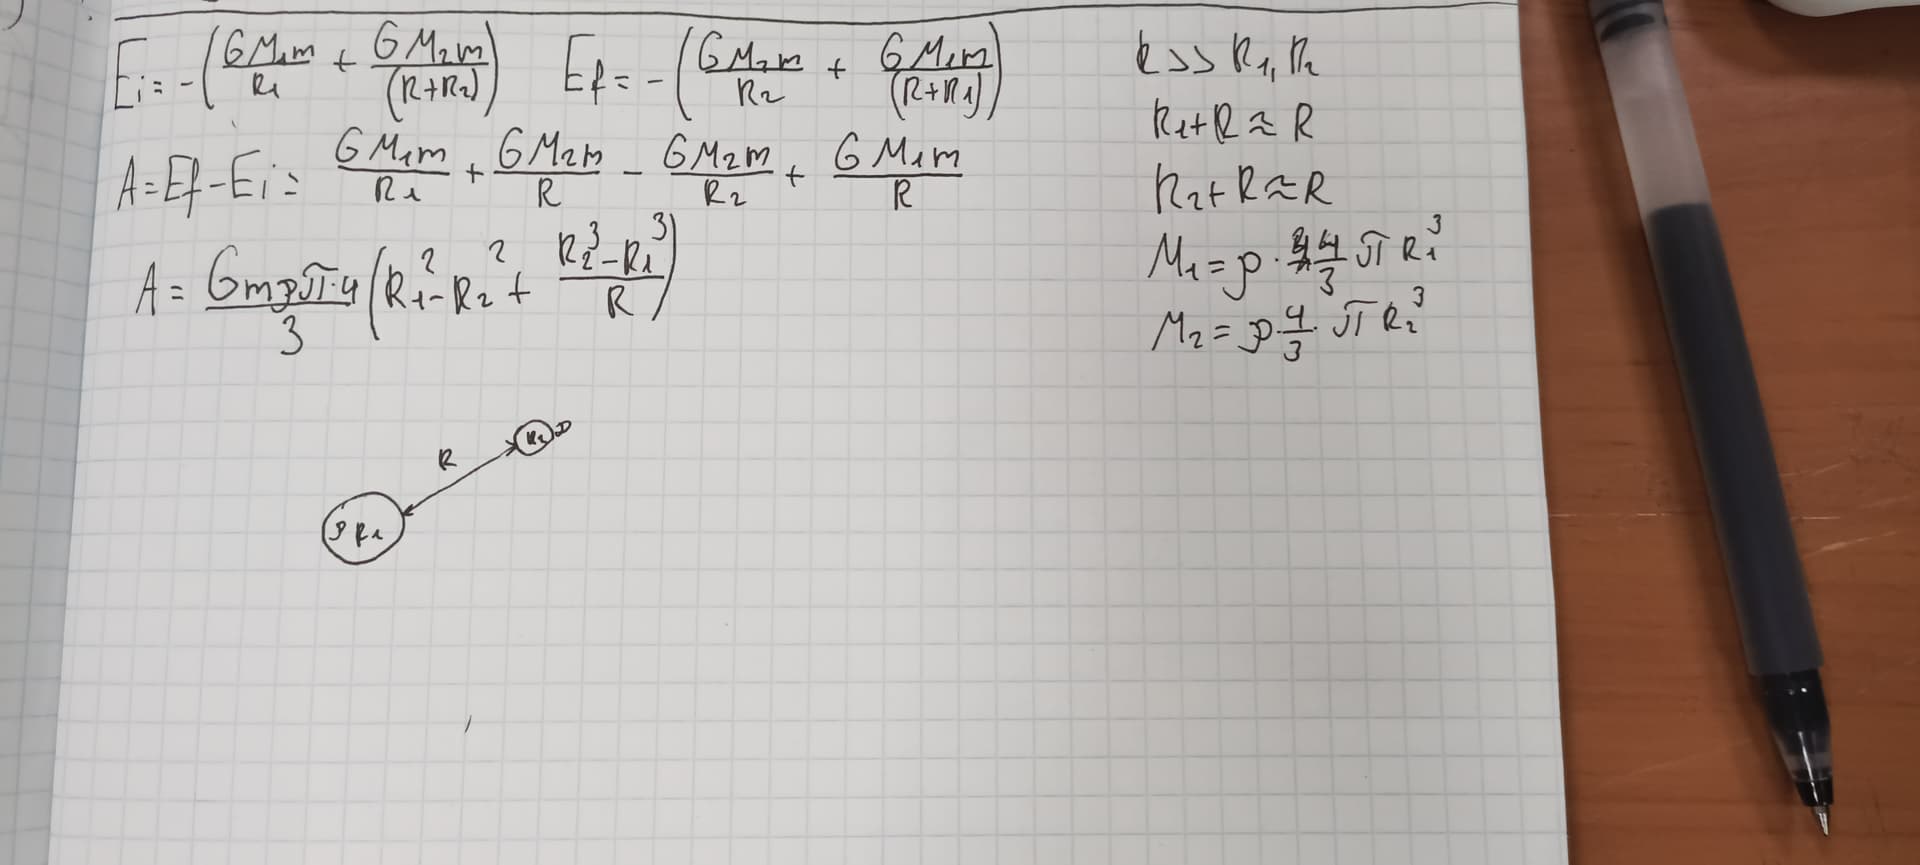 Ei = -(GM₁m/R₁ + GM₂m/(R+R₂)) Ef = -(GM₂m/R₂ + GM₁m/(R+R₁))
A = Ef - Ei = GM₁m/R₁ + GM₂m/R - GM₂m/R₂ + GM₁m/R
A = Gmρπ·4/3 (R₁² - R₂² + (R₂³ - R₁³)/R)
R >> R₁, R₂
R₁+R ≈ R
R₂+R ≈ R
M₁ = ρ · 4/3 π R₁³
M₂ = ρ · 4/3 · π R₂³
R
R₂ ρ
ρ R₁